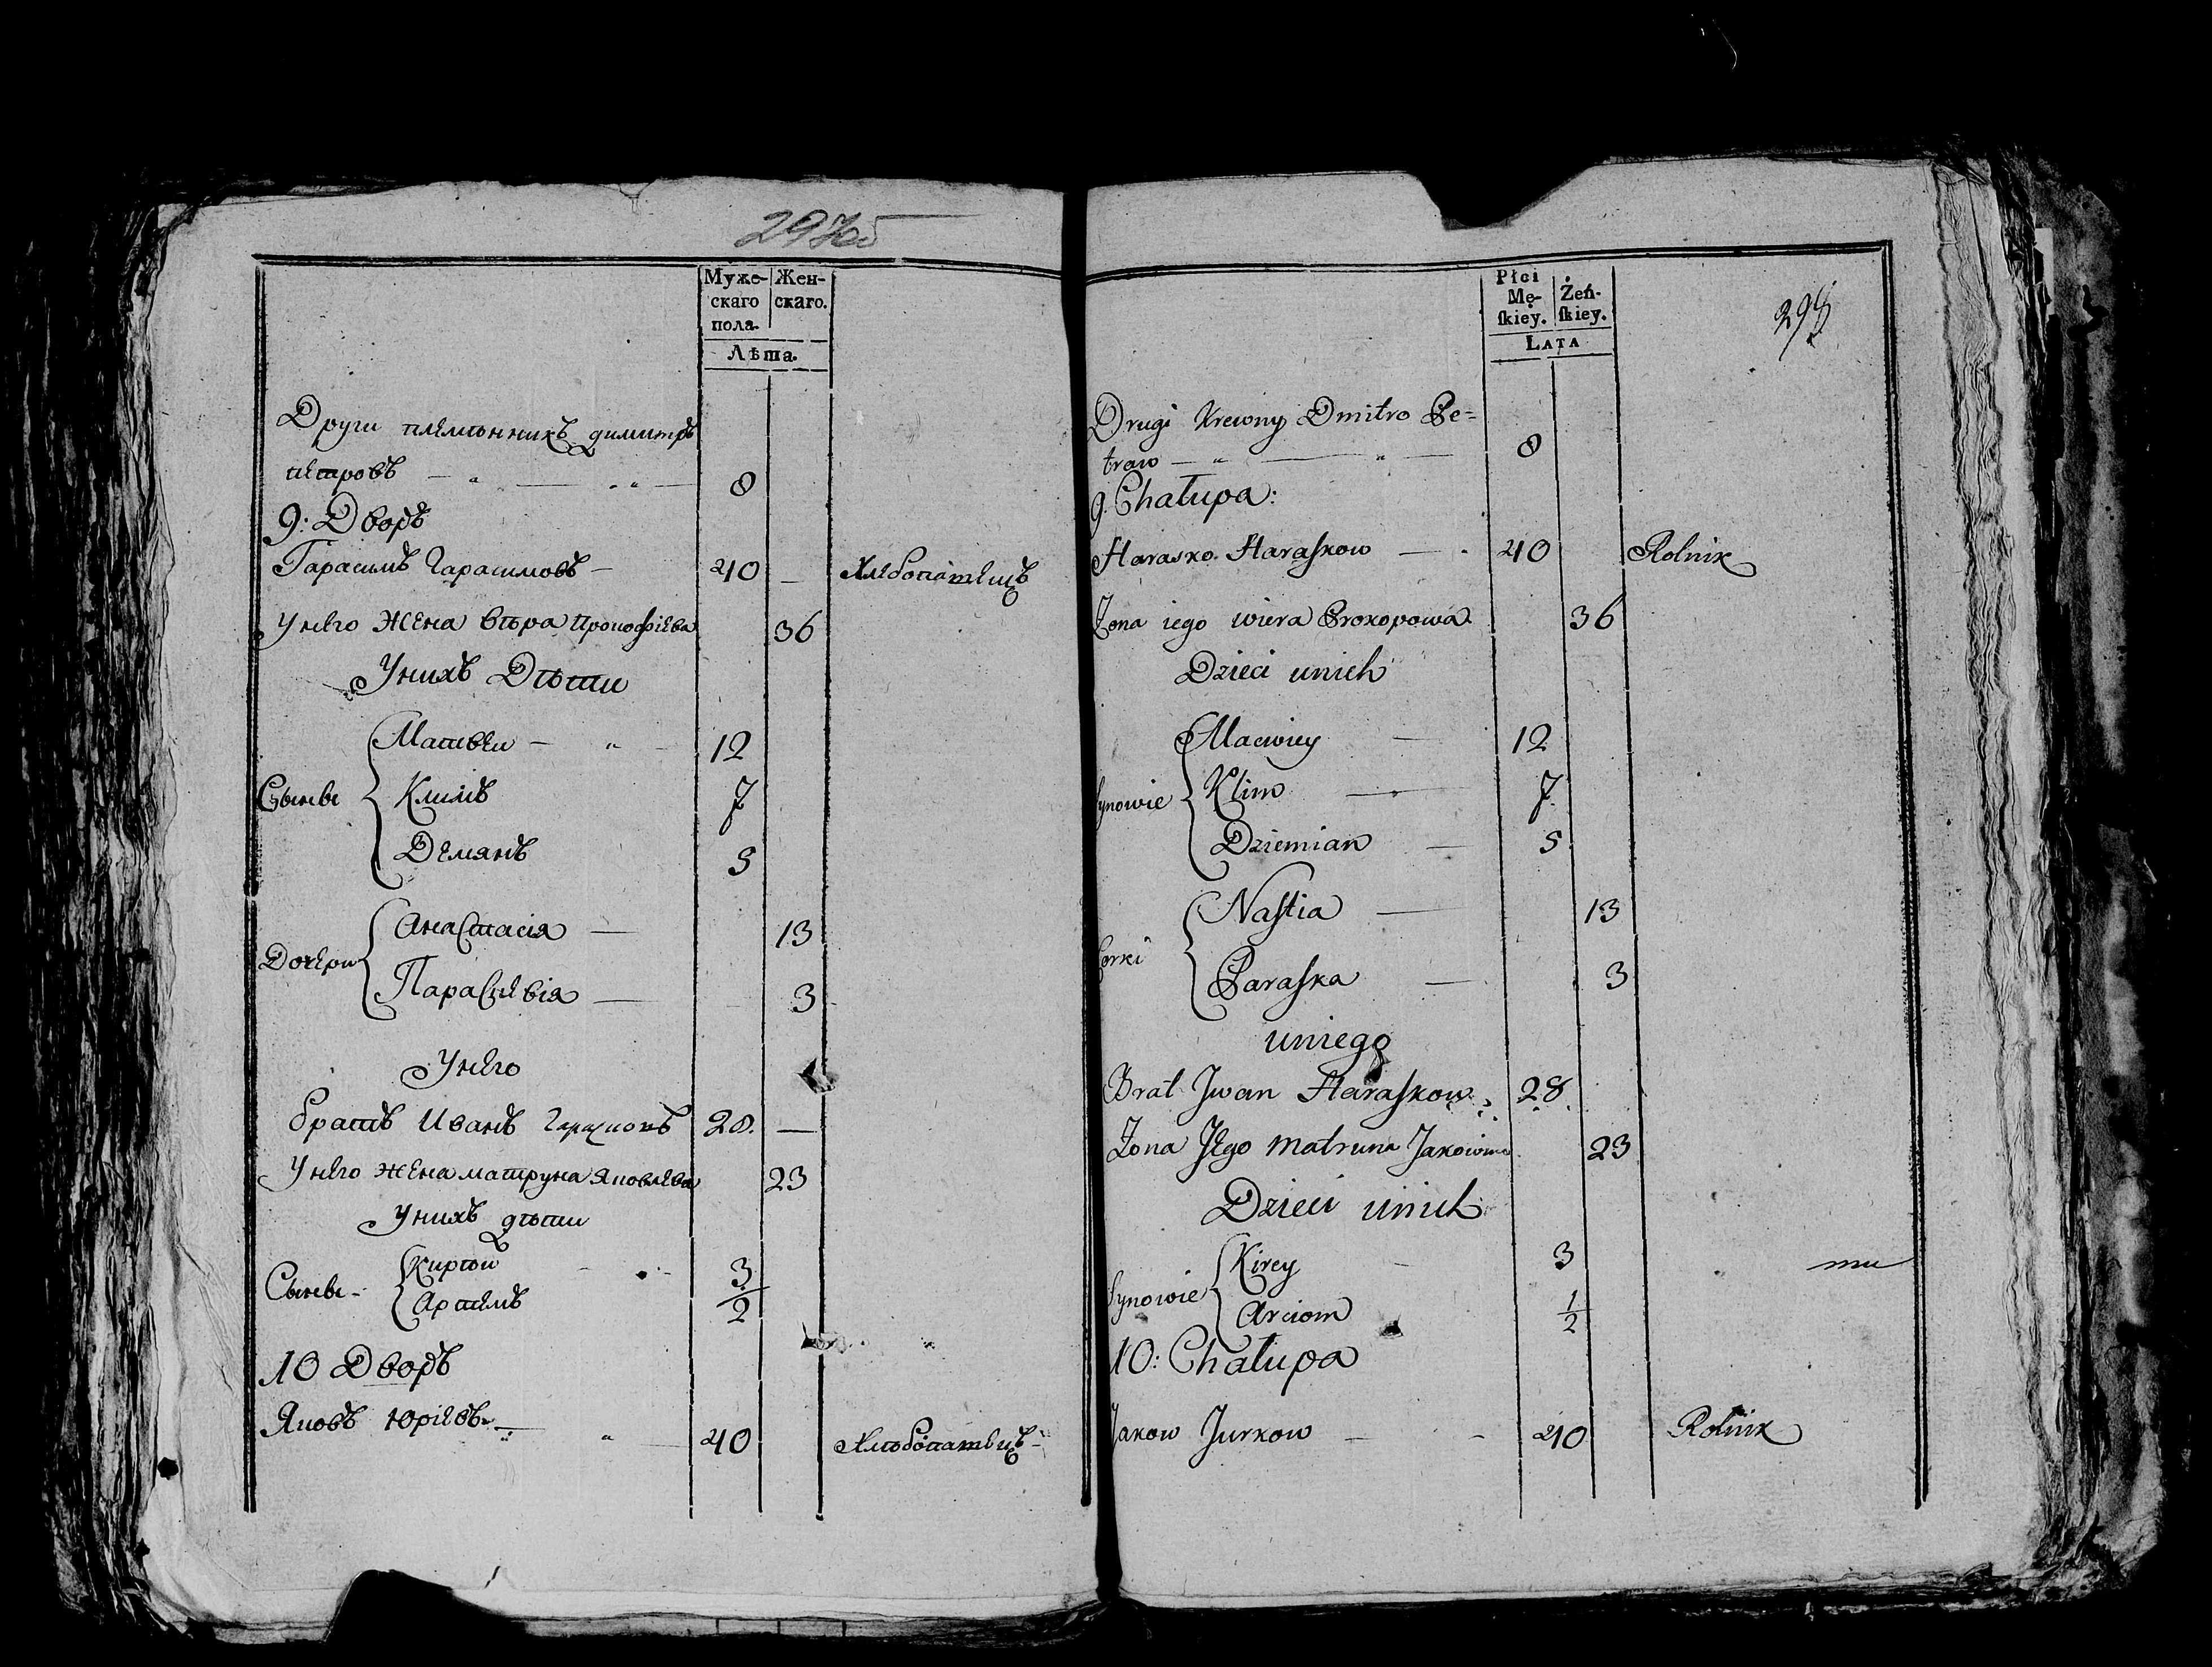 297об
Муже-
скаго
пола.
Жен-
скаго.
Лѣта.
Други племянникъ димитръ
петровъ 8
9: Дворъ
Гарасимъ Гарасимовъ 40 Хлебопатецъ
Унего жена вѣра Прокофіева 36
Унихъ Дѣти
Сынве
Матвеи 12
Климъ 7
Демянъ 5
Дочери
Анастасія 13
Параскевія 3
Унего
братъ Иванъ 28.
Унего жена матруна Яковлева 23
Унихъ дѣти
Сынве
Кирѣй 3
Артемъ 2
10 Дворъ
Яковъ Юріевъ 40 Хлѣбопатвцъ
Płci
Mę-
ſkiey.
Żeń-
ſkiey.
LATA
Drugi Krewny Dmitro Pe=
traw 8
9. Chałupa:
Harasko. Haraſkow 40 Rolnik
Żona iego wiera Prokopowa 36
Dzieci unich
Synowie
Maciwiey 12
Klim 7.
Dziemian 5
Corki
Naſtia 13
Paraſka 3
uniego
Brat Jwan Haraſkow 28.
Żona Jego Matruna Jakowowa 23
Dzieci unich
Synowie
Kirey 3
Arciom 1/2
10: Chałupa
Jakow Jurkow 40 Rolnik